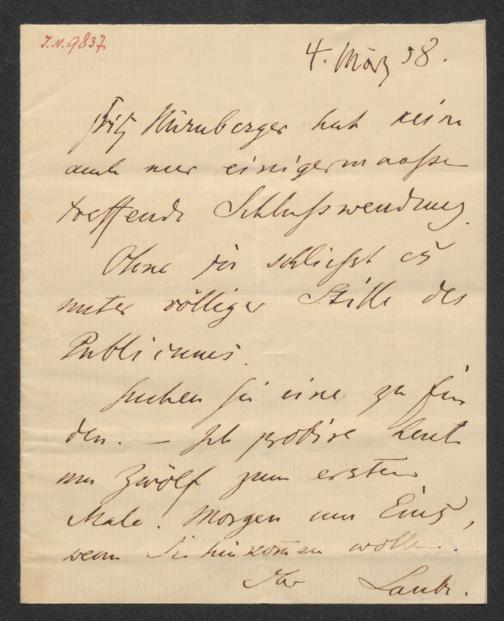 I.N. 9837
4. März 58.
Fritz Nürnberger hat keine
auch nur einigermaaßen
treffende Schlußwendung.
Ohne die schließt es
unter völliger Stille des
Publicums.
Suchen Sie eine zu fin
den. – Ich probire heut
um Zwölf zum ersten
Male. Morgen um Eins,
wenn Sie hinkommen wollen.
Ihr Laube.